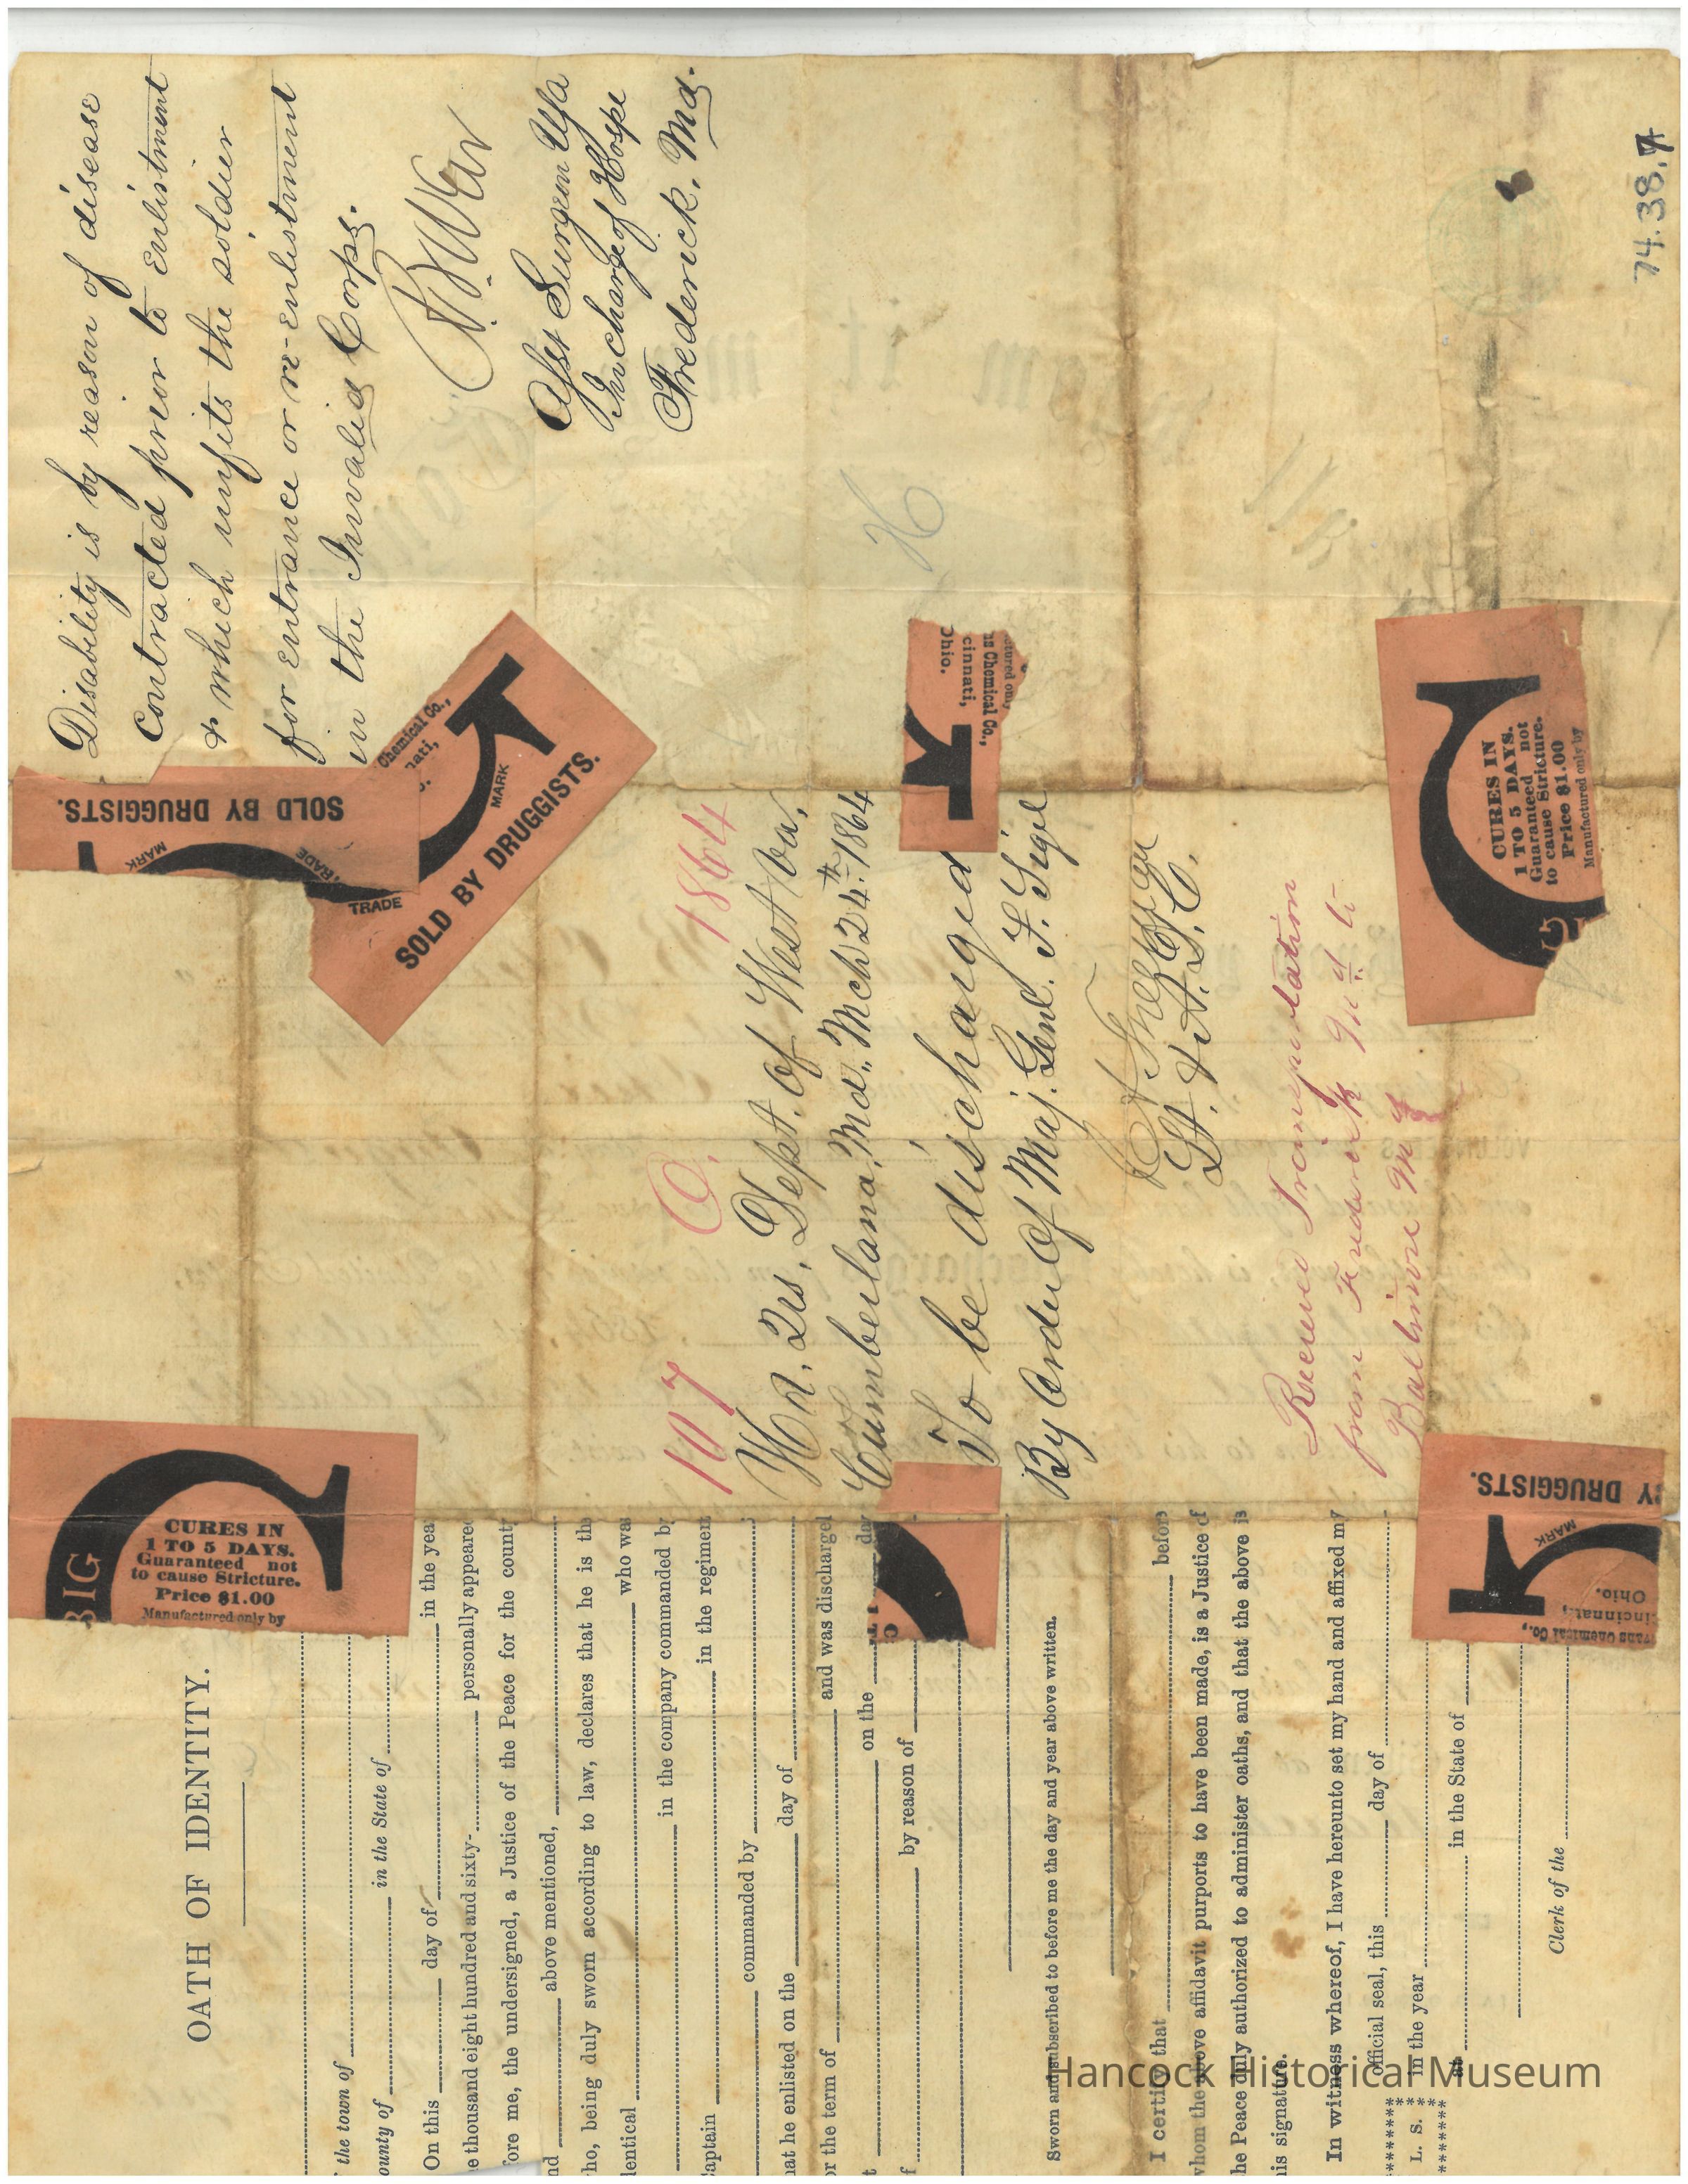 Disability is by reason of disease
contracted prior to enlistment
& which unfits the soldier
for entrance or re-enlistment
in the Invalid Corps.
Asst Surgeon Usa
In charge of Hosp
Frederick. Md.
74.38.7
H
107 O. 1864
Hd. Qrs. Dept. of West Va,
Cumberland, Md., Mch 24th 1864
To be discharged
By Order of Maj. Genl. F. Sigel
Lt. & A.D.C.
Received Transportation
from Frederick Md to
Baltimore Md
SOLD BY DRUGGISTS.
MARK
TRADE
Chemical Co.,
nati,
o.
MARK
TRADE
SOLD BY DRUGGISTS.
ctured only
ns Chemical Co.,
cinnati,
Ohio.
CURES IN
1 TO 5 DAYS.
Guaranteed not
to cause Stricture.
Price $1.00
Manufactured only by
BIG
BIG
CURES IN
1 TO 5 DAYS.
Guaranteed not
to cause Stricture.
Price $1.00
Manufactured only by
BY DRUGGISTS.
MARK
vans Chemical Co.,
incinnati,
Ohio.
OATH OF IDENTITY.
f the town of
ounty of in the State of
On this day of in the yea
e thousand eight hundred and sixty- personally appeared
fore me, the undersigned, a Justice of the Peace for the county
nd above mentioned,
ho, being duly sworn according to law, declares that he is the
dentical who was
in the company commanded by
Captain in the regiment
commanded by
hat he enlisted on the day of
or the term of and was discharged
t on the day
f by reason of
Sworn and subscribed to before me the day and year above written.
I certify that before
whom the above affidavit purports to have been made, is a Justice of
he Peace duly authorized to administer oaths, and that the above is
his signature.
In witness whereof, I have hereunto set my hand and affixed my
official seal, this day of
L. S. in the year
at in the State of
Clerk of the
Hancock Historical Museum